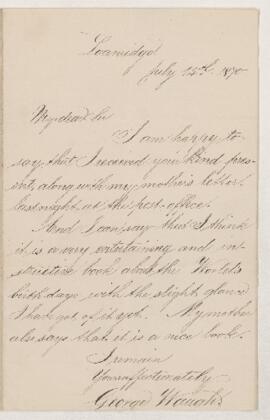 July 14th. 1870
My dear Sir
I am happy to
say that I received your kind pres-
ent, along with my mother's letter,
last night at the post office.
And I can say that I think
it is a very entertaining and in-
structive book about the World's
birth days, with the slight glance
I have got of it yet. My mother
also says that it is a nice book.
I remain
Yours affectionately
George